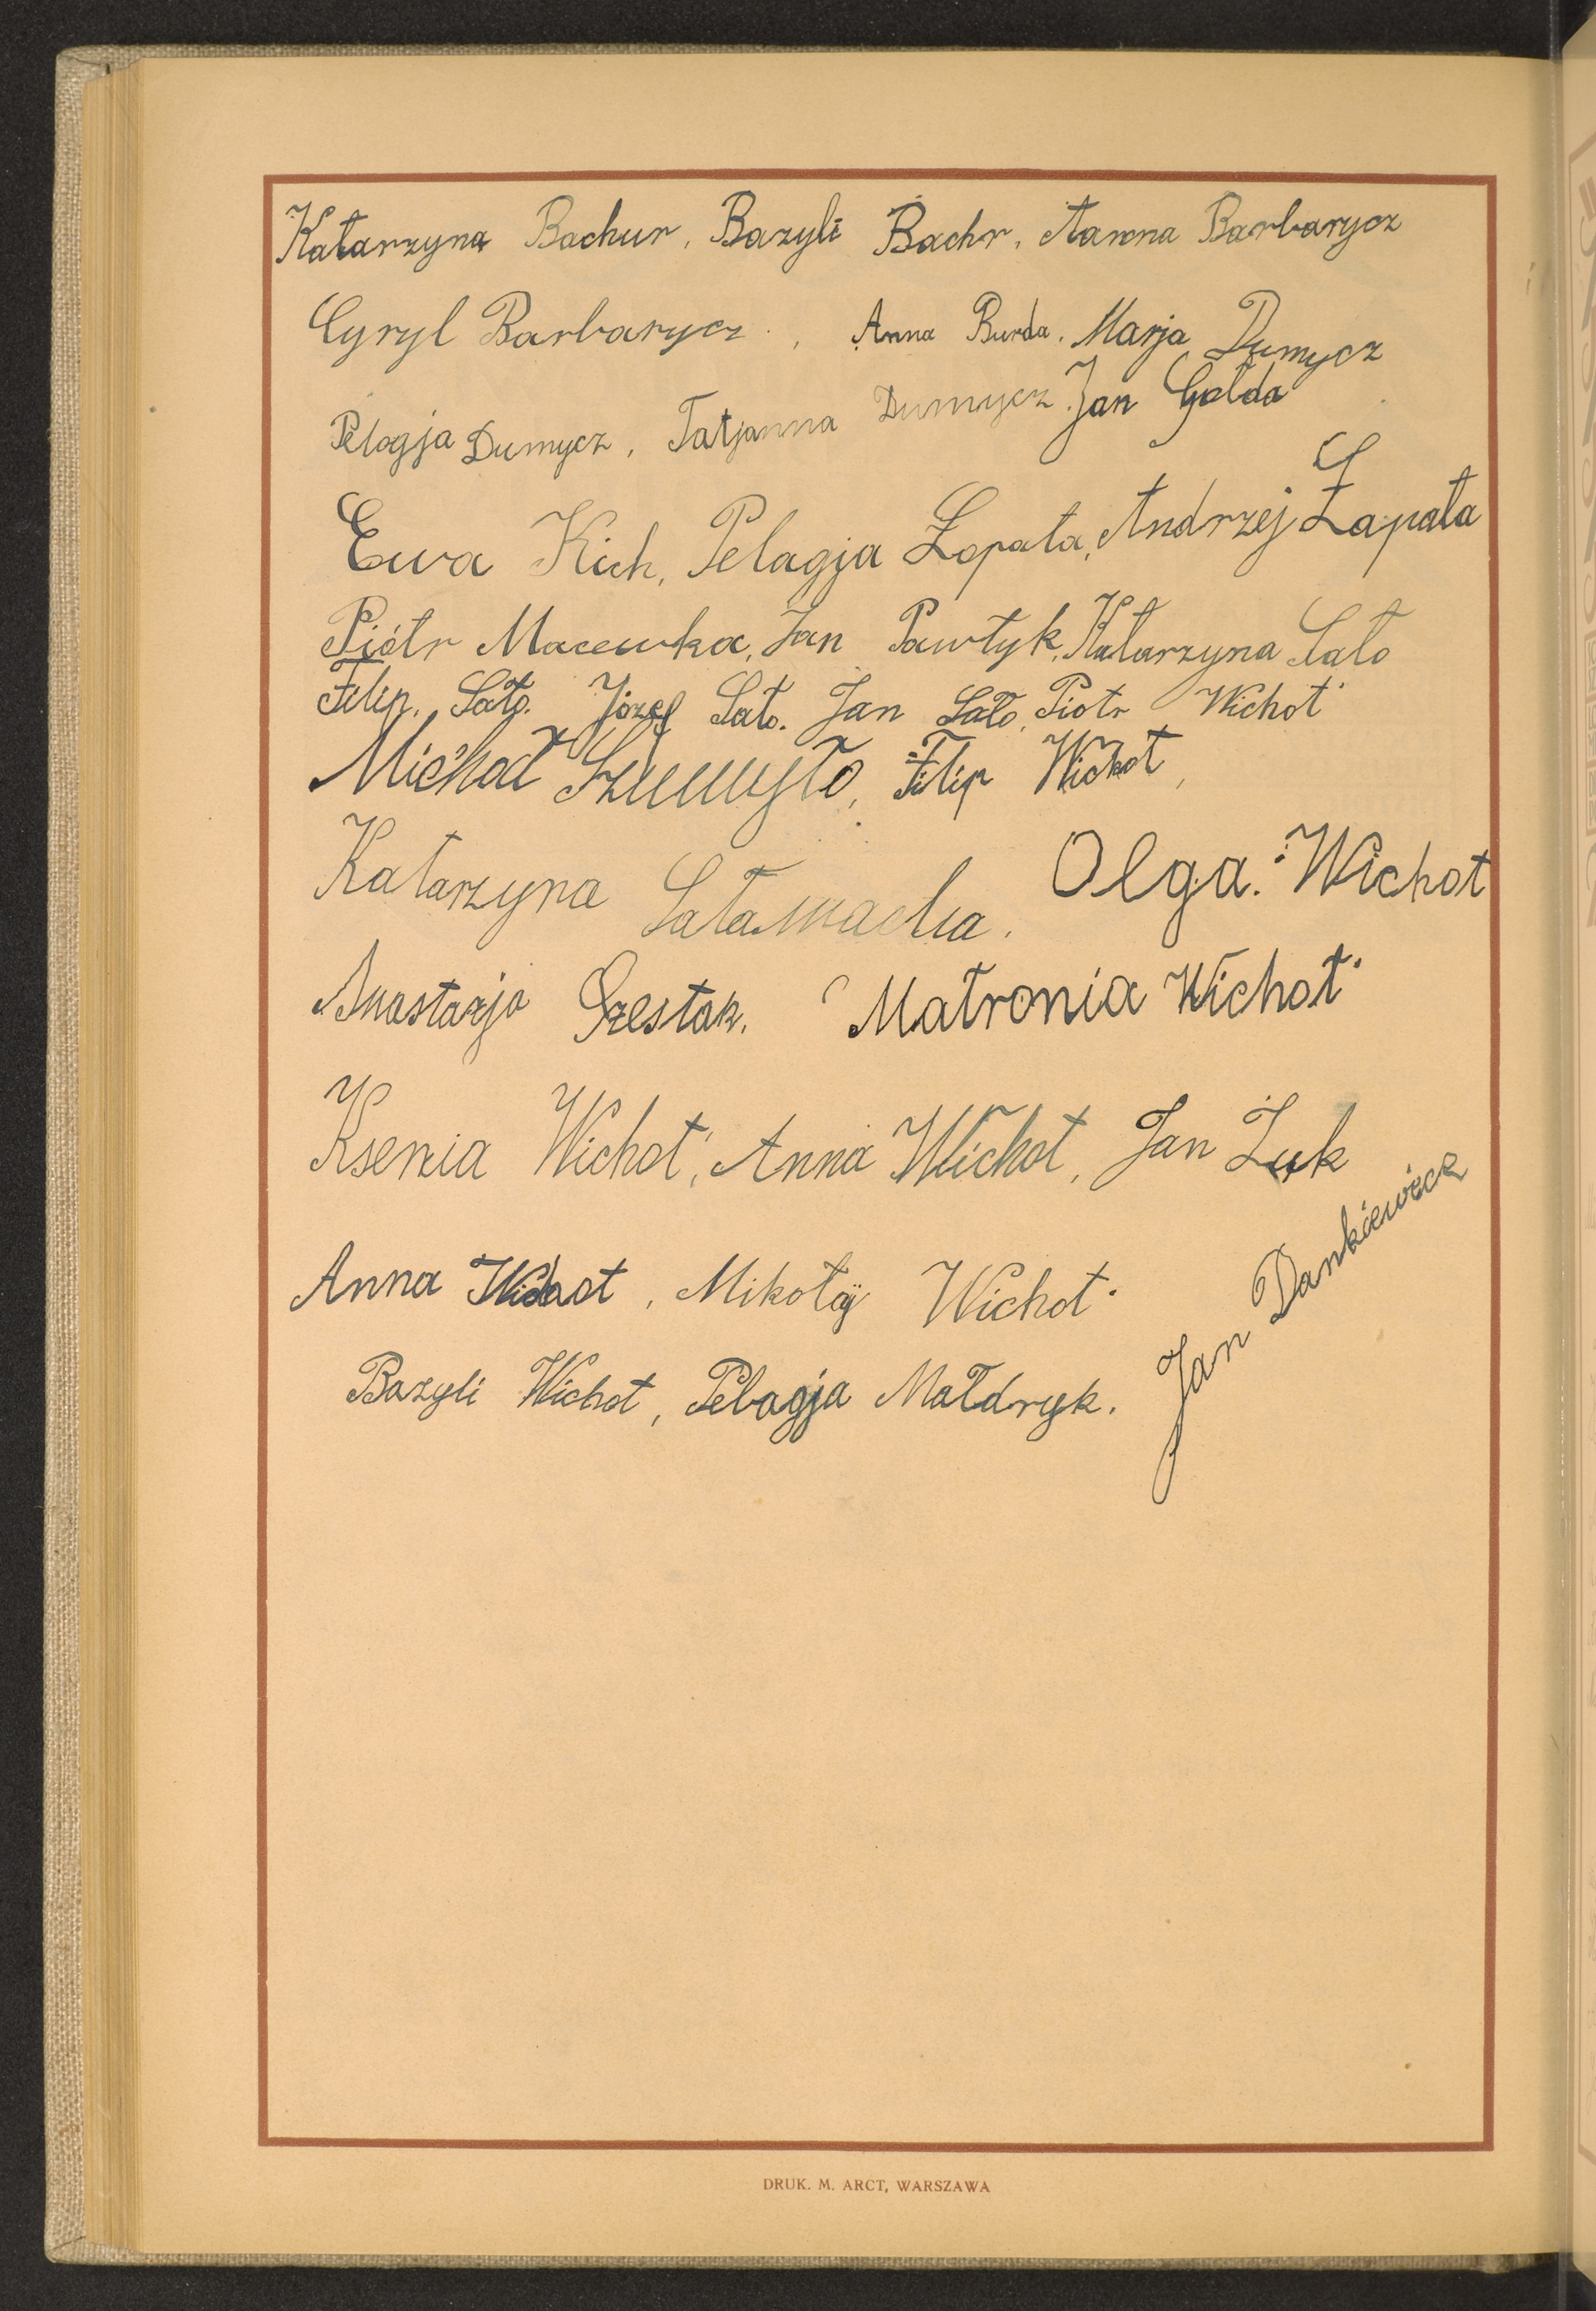 Katarzyna Bachur, Bazyli Bachr, Anna Barbarycz
Cyryl Barbarycz, Anna Burda. Marja Dumycz
Pelagja Dumycz, Tatjanna Dumycz. Jan Gołda
Ewa Kich, Pelagja Łopata, Andrzej Łapata
Piótr Macewka, Jan Pawłyk, Katarzyna Sało
Filip. Sało. Józef Sało. Jan Sało, Piotr Wichot
Michał Szumyło, Filip Wichot,
Katarzyna Sałamacha. Olga. Wichot
Anastazja Szestak. Matronia Wichot
Ksenia Wichot, Anna Wichot, Jan Żuk
Anna Wichot, Mikołaj Wichot
Jan Dankiewicz
Bazyli Wichot, Pelagja Małdryk.
DRUK. M. ARCT, WARSZAWA